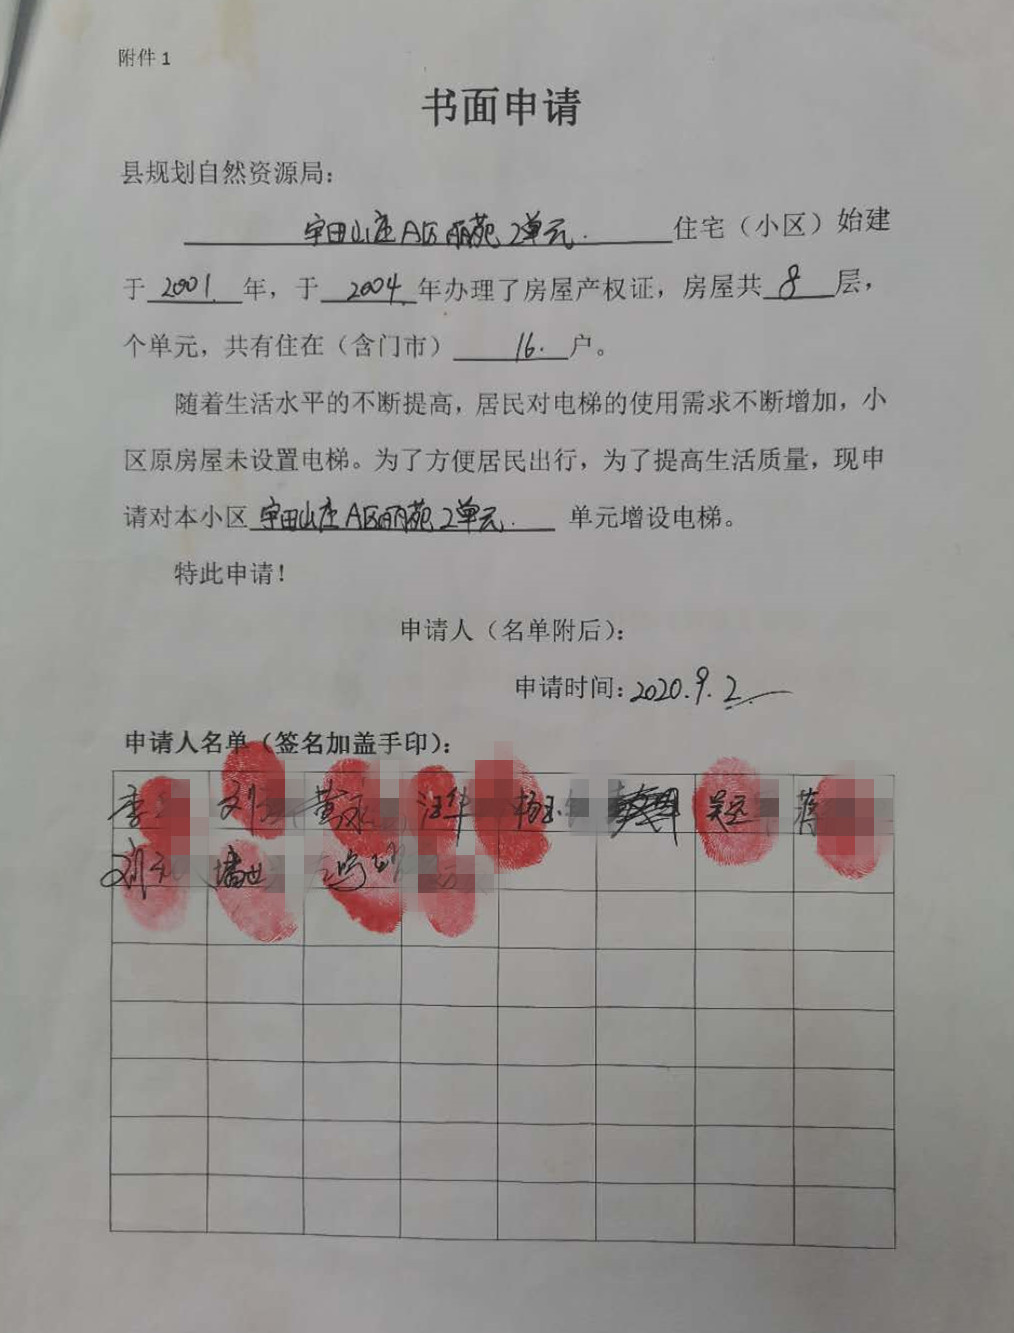 附件1
书面申请
县规划自然资源局：
宇田山庄A区丽苑2单元. 住宅（小区）始建
于2001.年，于2004.年办理了房屋产权证，房屋共8层，
个单元，共有住在（含门市）16.户。
随着生活水平的不断提高，居民对电梯的使用需求不断增加，小
区原房屋未设置电梯。为了方便居民出行，为了提高生活质量，现申
请对本小区宇田山庄A区丽苑2单元. 单元增设电梯。
特此申请！
申请人（名单附后）：
申请时间：2020.9.2
申请人名单（签名加盖手印）：
李 刘 黄永 汪华 杨玉 吴 蒋
刘 世